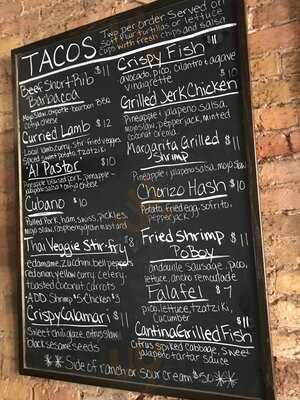 TACOS
Two per order. Served on
Soft flour tortillas or lettuce
cups with fresh chips and salsa
Beef Short-Rib $11
Barbacoa
Mojo slaw, chipotle-bourbon BBQ
cotija cheese
Curried Lamb $12
Local lamb curry, stir fried veggies
spiced sweet potato, tzatziki
Al Pastor $10
Pineapple roasted pork, pineapple-
jalapeño salsa & cotija cheese
Cubano $10
Pulled Pork, ham, swiss, pickles,
Mojo slaw, raspberry jam mustard
Thai Veggie Stir-fry $8
edamame, zucchini, bell peppers
red onion, yellow curry, celery
toasted coconut, carrots
ADD Shrimp $5 Chicken $3
Crispy Calamari $11
Sweet chili glaze, citrus slaw
black sesame seeds
Crispy Fish $11
avocado, pico, cilantro & agave
vinaigrette
Grilled Jerk Chicken $10
Pineapple & jalapeño salsa,
mojo slaw, pepper jack, minted
coconut crema
Margarita Grilled $11
Shrimp
Pineapple & jalapeño salsa, mojo slaw
Chorizo Hash $10
Potato, fried egg, sofrito,
pepper jack
Fried Shrimp $11
Po Boy
andouille sausage, pico,
lettuce, ancho remoulade
Falafel $7
pico, lettuce, tzatziki,
Cucumber
Cantina Grilled Fish $11
Citrus spiked cabbage, sweet
jalapeño tartar sauce
** Side of ranch or sour cream $.50 **